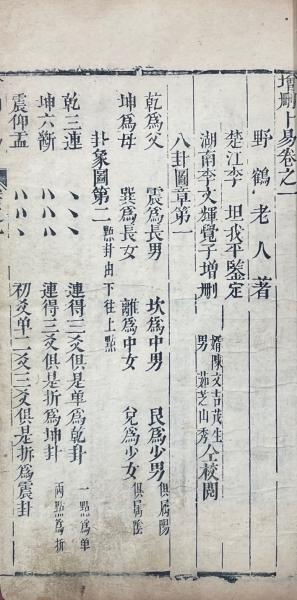 增刪卜易卷之一
野鶴老人著
楚江李 坦我平鑒定
湖南李文輝覺子增刪
婿陳文吉茂生
男 茹芝山秀 仝校閱
八卦圖章第一
乾為父 震為長男 坎為中男 艮為少男 俱屬陽
坤為母 巽為長女 離為中女 兌為少女 俱屬陰
卦象圖第二 點卦由下往上點
乾三連 、、、 連得三爻俱是單為乾卦 一點為單
坤六斷 八八八 連得三爻俱是拆為坤卦 兩點為拆
震仰盂 八八、 初爻單二爻三爻俱是拆為震卦